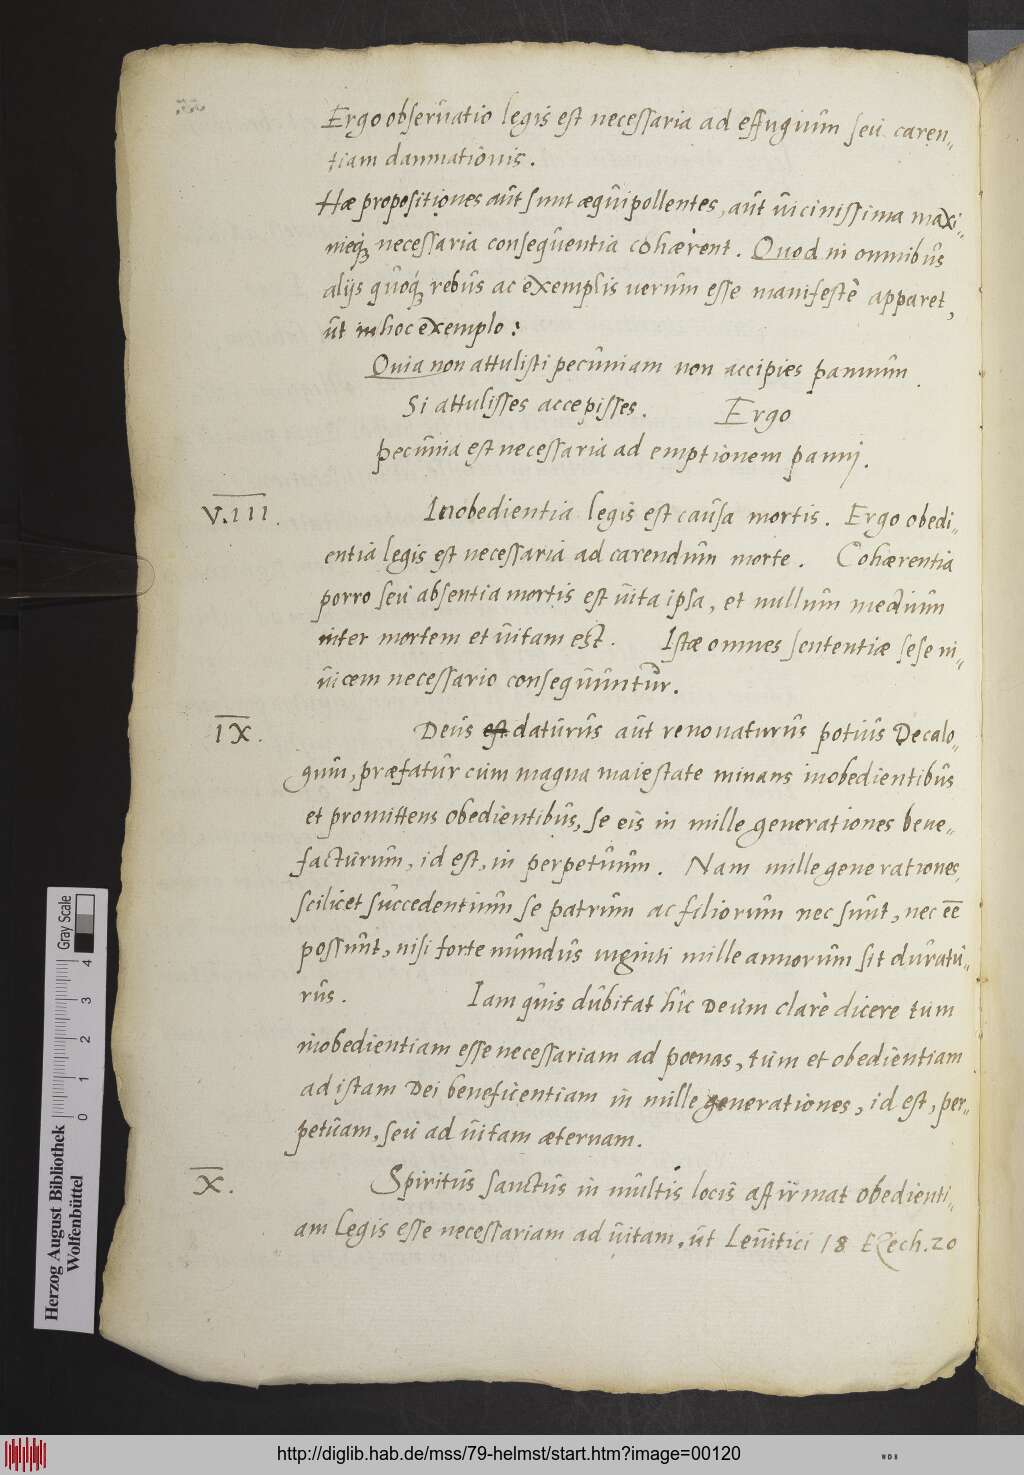 Ergo observatio legis est necessaria ad effugium seu caren„
tiam damnationis.
Hæ propositiones aut sunt æquipollentes, aut vicinissima maxi„
mieque necessaria consequentia cohærent. Quod in omnibus
alijs quoque rebus ac exemplis verum esse manifestè apparet,
ut in hoc exemplo:
Quia non attulisti pecuniam non accipies pannum
Si attulisses accepisses. Ergo
pecunia est necessaria ad emptionem panni.
VIII. Inobedientia legis est causa mortis. Ergo obedi„
entia legis est necessaria ad carendum morte. Cohærentia
porro seu absentia mortis est vita ipsa, et nullum medium
inter mortem et vitam est. Istæ omnes sententiæ sese in„
vicem necessario consequuntur.
IX. Deus est daturus aut renovaturus potius Decalo„
gum, præfatur cum magna maiestate minans inobedientibus
et promittens obedientibus, se eis in mille generationes bene„
facturum, id est, in perpetuum. Nam mille generationes,
scilicet succedentium se patrum ac filiorum nec sunt, nec eē
possunt, nisi forte mundus viginti mille annorum sit duratu„
rus. Iam quis dubitat hîc Deum clarè dicere tum
inobedientiam esse necessariam ad poenas, tum et obedientiam
ad istam Dei beneficentiam in mille generationes, id est, per„
petuam, seu ad vitam æternam.
X. Spiritus sanctus in multis locis affirmat obedienti„
am legis esse necessariam ad vitam, ut Levitici 18 Ezech. 20
Herzog August Bibliothek
Wolfenbüttel
0 1 2 3 4
Gray Scale
http://diglib.hab.de/mss/79-helmst/start.htm?image=00120
WDB